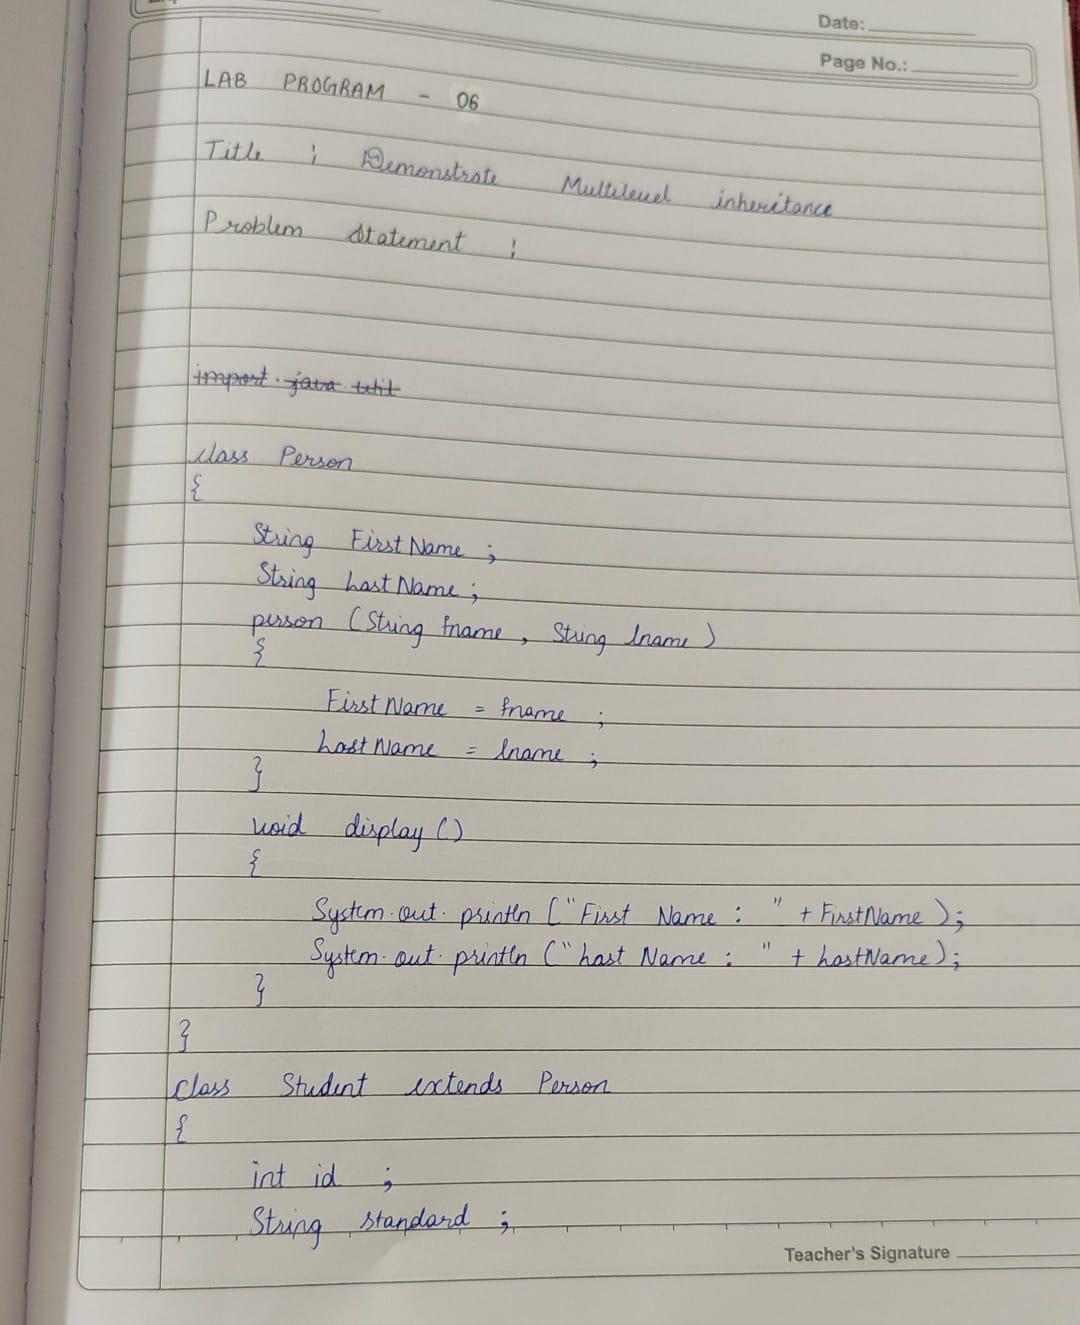 Date:
Page No.:
LAB PROGRAM - 06
Title : Demonstrate Multilevel inheritance
Problem Statement :
import java util
class Person
{
String FirstName ;
String LastName ;
person (String fname , String lname )
{
FirstName = fname ;
LastName = lname ;
}
void display ()
{
System.out.println ("First Name : " + FirstName );
System.out.println ("Last Name : " + LastName );
}
}
class Student extends Person
{
int id ;
String standard ;
Teacher's Signature